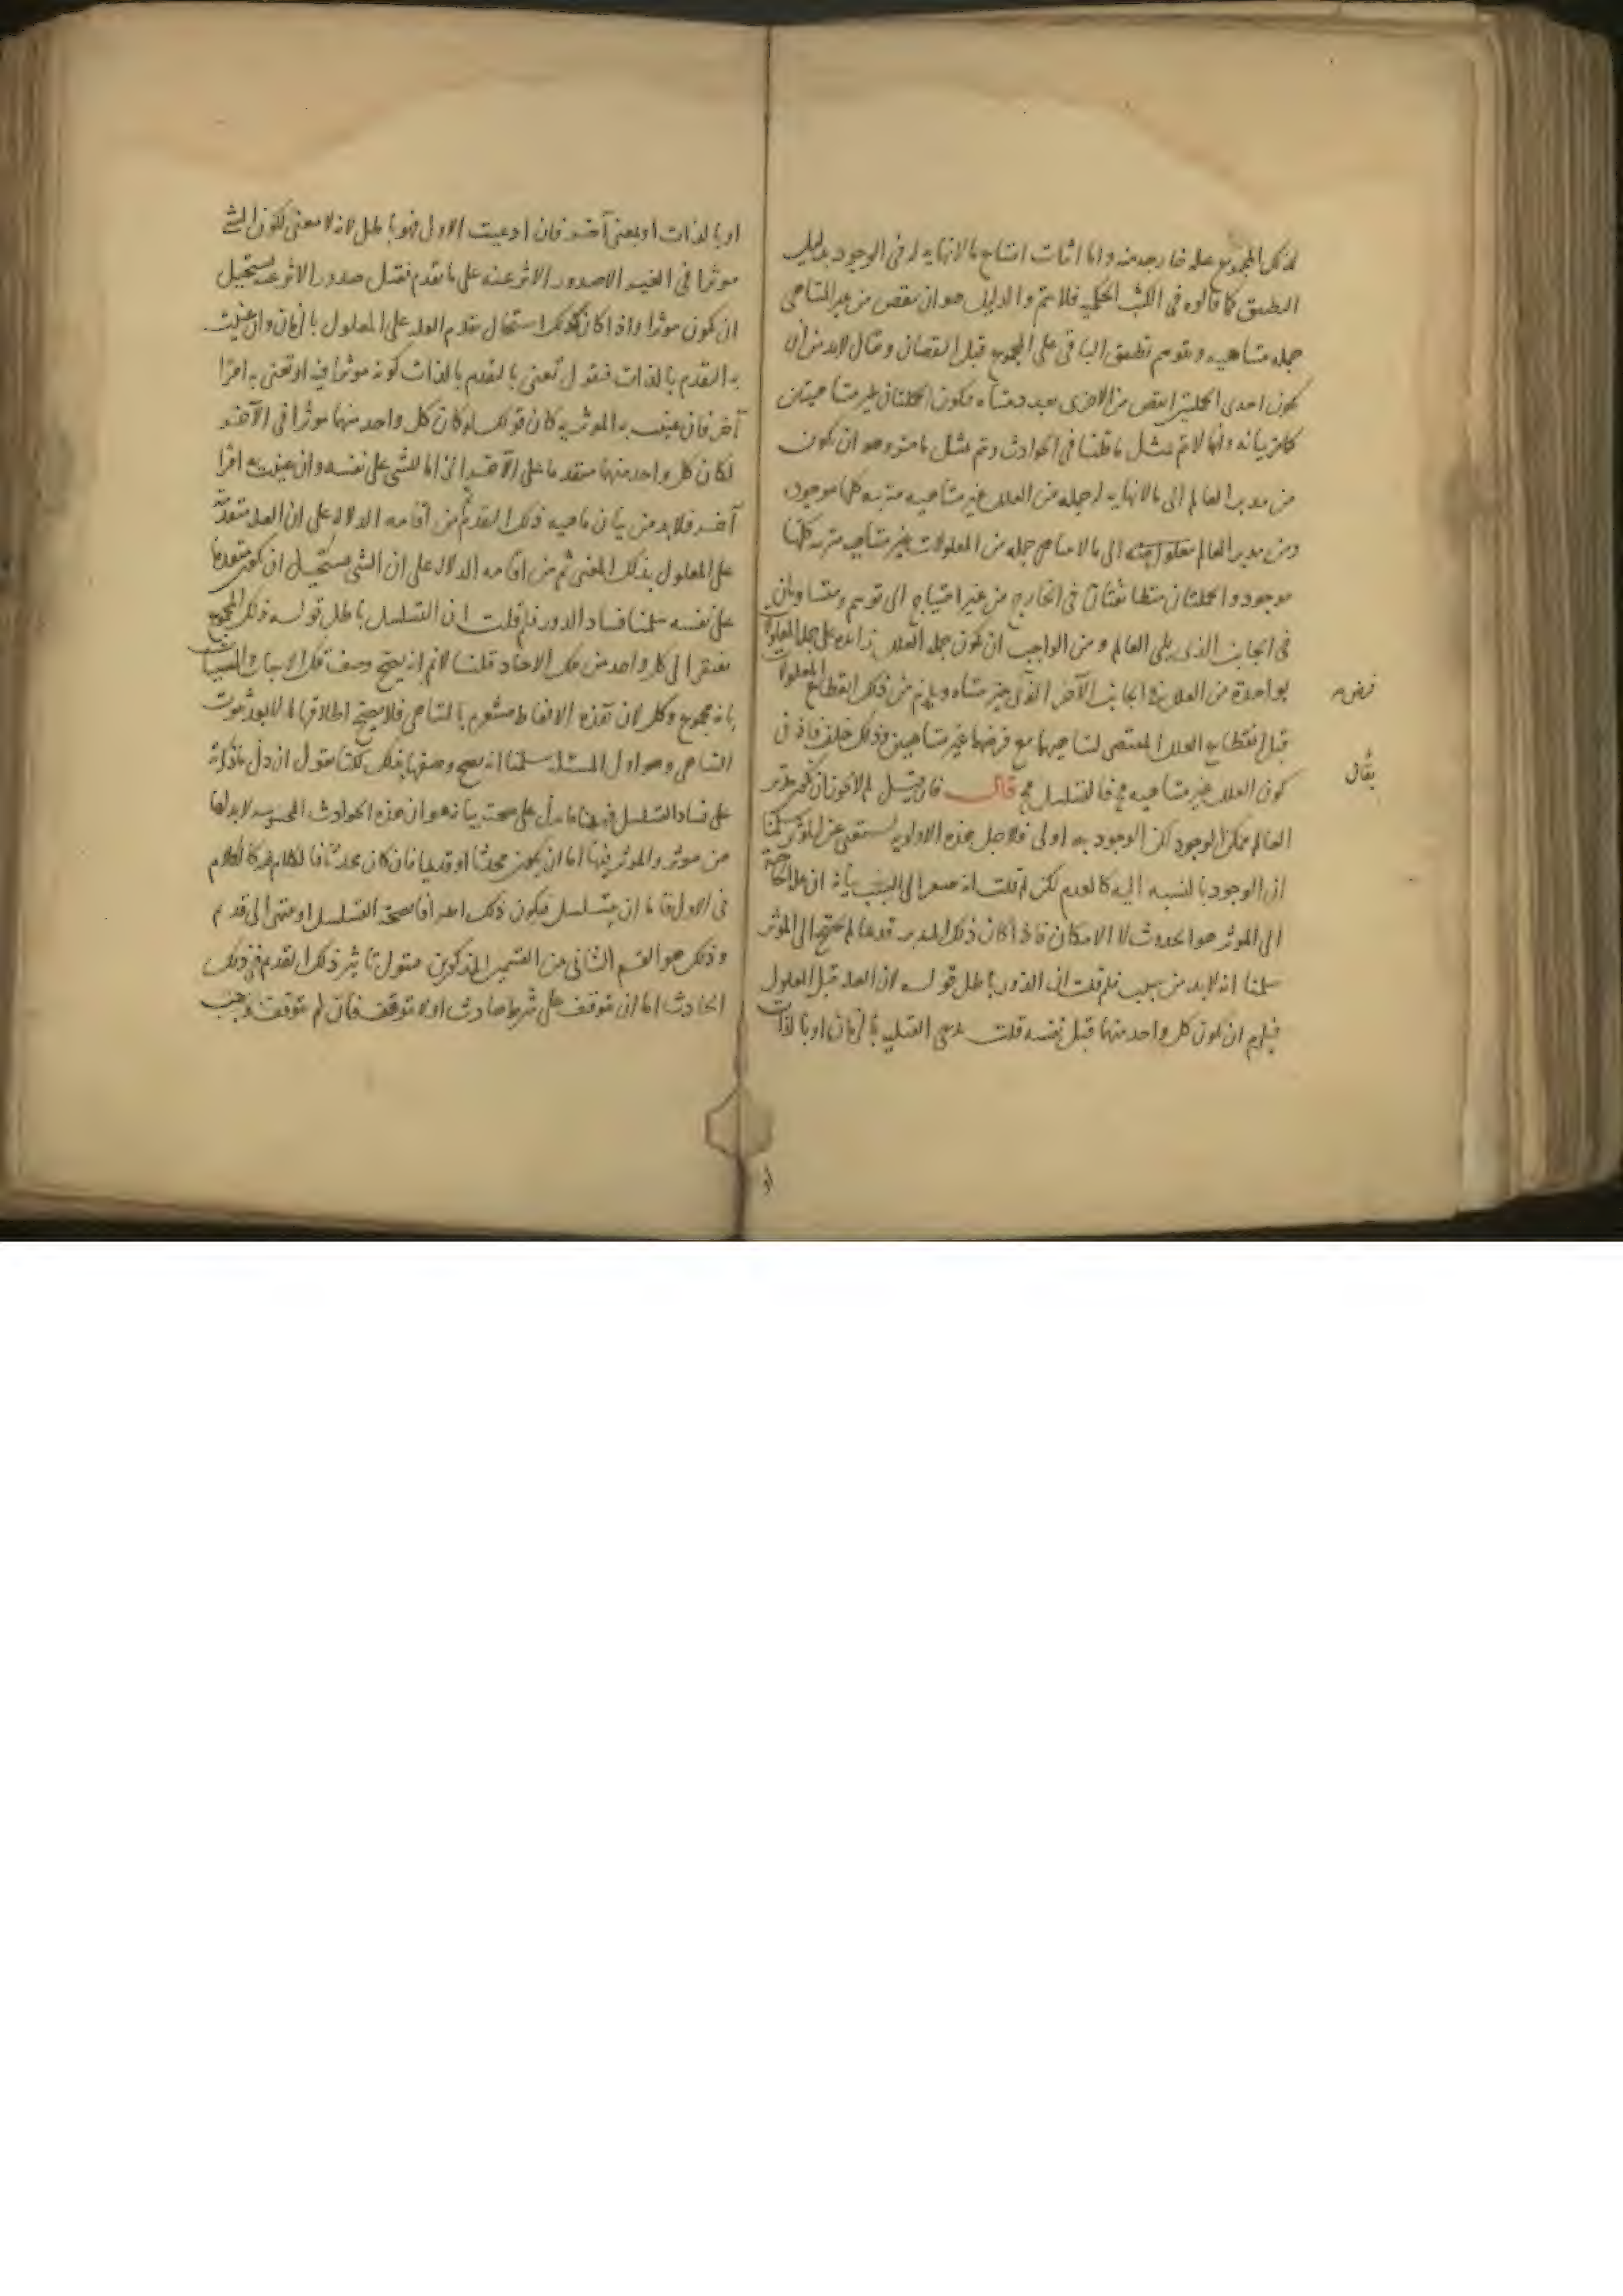 لذلك المجموع علة خارجة منه واما اثبات امتناع ما لا نهاية له فى الوجود بدليل
التطبيق كما قالوه فى الكتب الحكمية فلا يتم والدليل هو ان ينقص من غير المتناهى
جملة متناهية ويتوهم تطبيق الباقى على المجموع قبل النقصان ويقال لابد من ان
يكون احدى الجملتين انقص من الاخرى بعدد متناه فيكون الجملتان غير متناهيتين
كما مر بيانه وانما لا يتم بمثل ما قلنا فى الحوادث ويتم بمثل ما مر وهو ان يكون
من مدبر العالم الى ما لا نهاية له جملة من العلل غير متناهية مترتبة كلها موجود
ومن مدبر العالم الى ما لا يتناهى جملة من المعلولات غير متناهية مترتبة كلها
موجود والجملتان متطابقتان فى الخارج من غير احتياج الى توهم ومتساويان
فى الجانب الذى يلى العالم ومن الواجب ان يكون جملة العلل زائدة على جملة المعلولات
بواحدة من العلل فى الجانب الآخر الذى غير متناه ويلزم من ذلك انقطاع المعلولات
قبل انقطاع العلل المقتضى لتناهيهما مع فرضهما غير متناهيين وذلك خلف فاذن
كون العلل غير متناهية مح فالتسلسل مح قال فان قيل لم لا يجوز ان يكون مدبر
العالم ممكن الوجود لكن الوجود به اولى فلاجل هذه الاولوية يستغنى عن المؤثر سلمنا
ان الوجود بالنسبة اليه كالعدم لكن لم قلت انه مفتقر الى السبب بيانه ان علة الحاجة
الى المؤثر هو الحدوث لا الامكان فاذا كان ذلك المدبر قديما لم يحتج الى المؤثر
سلمنا انه لابد من سبب فلم قلت ان الدور باطل قوله ان العلة قبل المعلول
فيلزم ان يكون كل واحد منهما قبل نفسه قلت تدعى القبلية بالزمان او بالذات
يقال
او بالذات او بمعنى آخر فان ادعيت الاول فهو باطل لانه لا معنى لكون الشئ
موثرا فى الغير الا صدور الاثر عنه على ما تقدم فقبل صدور الاثر عنه يستحيل
ان يكون موثرا واذا كان كذلك استحال تقدم العلة على المعلول بالزمان وان عنيت
به التقدم بالذات فنقول تعنى بالتقدم بالذات كونه موثرا فيه او تعنى به امرا
آخر فان عنيت به الموثرية كان قولك لو كان كل واحد منهما موثرا فى الآخر
لكان كل واحد منهما متقدما على الآخر الزاما للشى على نفسه وان عنيت به امرا
آخر فلابد من بيان ماهية ذلك التقدم ثم من اقامة الدلالة على ان العلة متقدمة
على المعلول بذلك المعنى ثم من اقامة الدلالة على ان الشى يستحيل ان يكون متقدما
على نفسه سلمنا فساد الدور فلم قلت ان التسلسل باطل قوله ذلك المجموع
مفتقر الى كل واحد من تلك الاحاد قلنا لا نم انه يصح وصف تلك الاسباب والمسببات
بانه مجموع وكل لان هذه الالفاظ مشعرة بالتناهى فلا يصح اطلاقها الا بعد ثبوت
التناهى وهو اول المسئلة سلمنا انه يصح وصفها بذلك لكنا نقول ان دل ما ذكرته
على فساد التسلسل فههنا ما يدل على صحته بيانه هو ان هذه الحوادث المحسوسة لابد لها
من موثر والموثر فيها اما ان يكون محدثا او قديما فان كان محدثا فالكلام فيه كالكلام
فى الاول فاما ان يتسلسل فيكون ذلك اعترافا بصحة التسلسل او ينتهى الى قديم
وذلك هو القسم الثانى من القسمين المذكورين فنقول تاثير ذلك القديم فى ذلك
الحادث اما ان يتوقف على شرط حادث او لا يتوقف فان لم يتوقف وجب